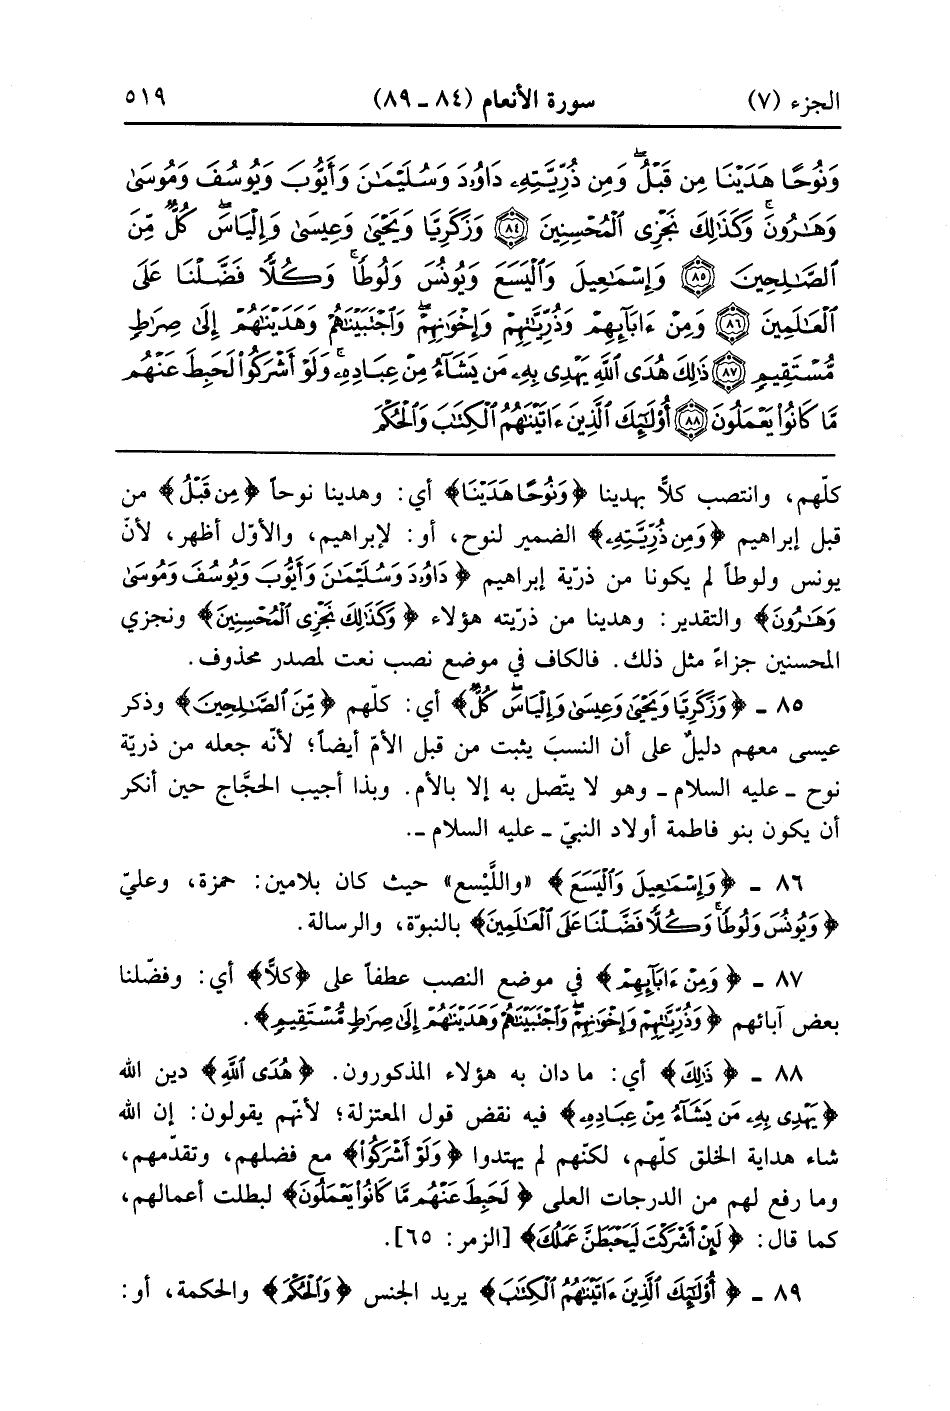 الجزء (٧) سورة الأنعام (٨٤ - ٨٩) ٥١٩
وَنُوحًا هَدَيْنَا مِن قَبْلُ ۖ وَمِن ذُرِّيَّتِهِۦ دَاوُۥدَ وَسُلَيْمَٰنَ وَأَيُّوبَ وَيُوسُفَ وَمُوسَىٰ
وَهَٰرُونَ ۚ وَكَذَٰلِكَ نَجْزِى ٱلْمُحْسِنِينَ ﴿٨٤﴾ وَزَكَرِيَّا وَيَحْيَىٰ وَعِيسَىٰ وَإِلْيَاسَ ۖ كُلٌّ مِّنَ
ٱلصَّٰلِحِينَ ﴿٨٥﴾ وَإِسْمَٰعِيلَ وَٱلْيَسَعَ وَيُونُسَ وَلُوطًا ۚ وَكُلًّا فَضَّلْنَا عَلَى
ٱلْعَٰلَمِينَ ﴿٨٦﴾ وَمِنْ ءَابَآئِهِمْ وَذُرِّيَّٰتِهِمْ وَإِخْوَٰنِهِمْ ۖ وَٱجْتَبَيْنَٰهُمْ وَهَدَيْنَٰهُمْ إِلَىٰ صِرَٰطٍ
مُّسْتَقِيمٍ ﴿٨٧﴾ ذَٰلِكَ هُدَى ٱللَّهِ يَهْدِى بِهِۦ مَن يَشَآءُ مِنْ عِبَادِهِۦ ۚ وَلَوْ أَشْرَكُوا۟ لَحَبِطَ عَنْهُم
مَّا كَانُوا۟ يَعْمَلُونَ ﴿٨٨﴾ أُو۟لَٰٓئِكَ ٱلَّذِينَ ءَاتَيْنَٰهُمُ ٱلْكِتَٰبَ وَٱلْحُكْمَ
كلّهم، وانتصب كلاًّ بهدينا ﴿وَنُوحًا هَدَيْنَا﴾ أي: وهدينا نوحاً ﴿مِن قَبْلُ﴾ من
قبل إبراهيم ﴿وَمِن ذُرِّيَّتِهِۦ﴾ الضمير لنوح، أو: لإبراهيم، والأوّل أظهر، لأنّ
يونس ولوطاً لم يكونا من ذرّية إبراهيم ﴿دَاوُۥدَ وَسُلَيْمَٰنَ وَأَيُّوبَ وَيُوسُفَ وَمُوسَىٰ
وَهَٰرُونَ﴾ والتقدير: وهدينا من ذرّيته هؤلاء ﴿وَكَذَٰلِكَ نَجْزِى ٱلْمُحْسِنِينَ﴾ ونجزي
المحسنين جزاءً مثل ذلك. فالكاف في موضع نصب نعت لمصدر محذوف.
٨٥ - ﴿وَزَكَرِيَّا وَيَحْيَىٰ وَعِيسَىٰ وَإِلْيَاسَ ۖ كُلٌّ﴾ أي: كلّهم ﴿مِّنَ ٱلصَّٰلِحِينَ﴾ وذكر
عيسى معهم دليلٌ على أن النسبَ يثبت من قبل الأمّ أيضاً؛ لأنّه جعله من ذريّة
نوح - عليه السلام - وهو لا يتّصل به إلا بالأم. وبذا أجيب الحجَّاج حين أنكر
أن يكون بنو فاطمة أولاد النبيّ - عليه السلام -.
٨٦ - ﴿وَإِسْمَٰعِيلَ وَٱلْيَسَعَ﴾ «واللَّيْسع» حيث كان بلامين: حمزة، وعليّ
﴿وَيُونُسَ وَلُوطًا ۚ وَكُلًّا فَضَّلْنَا عَلَى ٱلْعَٰلَمِينَ﴾ بالنبوّة، والرسالة.
٨٧ - ﴿وَمِنْ ءَابَآئِهِمْ﴾ في موضع النصب عطفاً على ﴿كلاًّ﴾ أي: وفضّلنا
بعض آبائهم ﴿وَذُرِّيَّٰتِهِمْ وَإِخْوَٰنِهِمْ ۖ وَٱجْتَبَيْنَٰهُمْ وَهَدَيْنَٰهُمْ إِلَىٰ صِرَٰطٍ مُّسْتَقِيمٍ﴾.
٨٨ - ﴿ذَٰلِكَ﴾ أي: ما دان به هؤلاء المذكورون. ﴿هُدَى ٱللَّهِ﴾ دين الله
﴿يَهْدِى بِهِۦ مَن يَشَآءُ مِنْ عِبَادِهِۦ﴾ فيه نقض قول المعتزلة؛ لأنّهم يقولون: إن الله
شاء هداية الخلق كلّهم، لكنّهم لم يهتدوا ﴿وَلَوْ أَشْرَكُوا۟﴾ مع فضلهم، وتقدّمهم،
وما رفع لهم من الدرجات العلى ﴿لَحَبِطَ عَنْهُم مَّا كَانُوا۟ يَعْمَلُونَ﴾ لبطلت أعمالهم،
كما قال: ﴿لَئِنْ أَشْرَكْتَ لَيَحْبَطَنَّ عَمَلُكَ﴾ [الزمر: ٦٥].
٨٩ - ﴿أُو۟لَٰٓئِكَ ٱلَّذِينَ ءَاتَيْنَٰهُمُ ٱلْكِتَٰبَ﴾ يريد الجنس ﴿وَٱلْحُكْمَ﴾ والحكمة، أو: